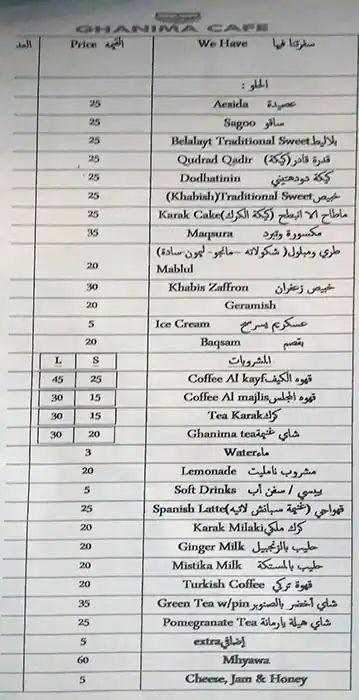 GHANIMA CAFE
العد Price القيمة We Have سفرتنا فيها
الحلو :
25 Acaida عصيدة
25 Sagoo ساقو
25 Belalayt Traditional Sweet بلاليط
25 Qudrad Qadir قدرة قادر (كيكة)
25 Dodhatinin كيكة دودهتيني
25 (Khabish)Traditional Sweet خبيص
25 Karak Cake(كيكة الكرك) ماطاح الا انبطح
35 Maqsura مكسورة وتبرد
طري ومبلول( شكولاته – مانجو- ليمون سادة)
20 Mablul
30 Khabis Zaffron خبيص زعفران
20 Geramish
5 Ice Cream عسكريم يسرسح
20 Baqsam بقصم
L S المشروبات
45 25 Coffee Al kayf قهوه الكيف
30 15 Coffee Al majlis قهوه المجلس
30 15 Tea Karak كرك
30 20 Ghanima tea شاي غنيمة
3 Water ماء
20 Lemonade مشروب نامليت
5 Soft Drinks بيبسي / سفن أب
25 Spanish Latte قهواجي (غنيمة سبانش لاتيه)
20 Karak Milaki كرك ملكي
20 Ginger Milk حليب بالزنجبيل
20 Mistika Milk حليب بالمستكة
20 Turkish Coffee قهوة تركي
35 Green Tea w/pin شاي أخضر بالصنوبر
25 Pomegranate Tea شاي هيلة يارمانة
5 extra إضافي
60 Mhyawa
5 Cheese, Jam & Honey